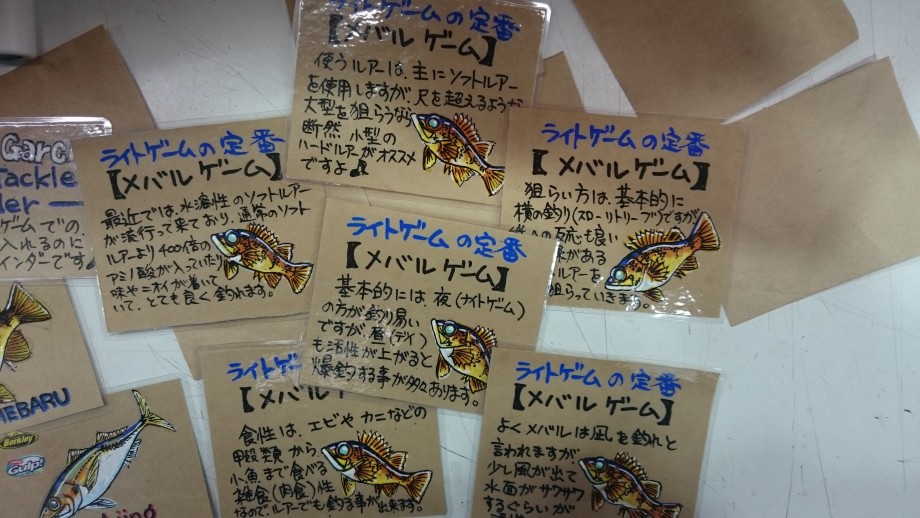 ライトゲームの定番
【メバルゲーム】
使うルアーは、主にソフトルアー
を使用しますが、尺を超えるような
大型を狙らうなら
断然 小型の
ハードルアーがオススメ
ですよ♪
Garc
Tackle
ler
ゲームでの
入れるのに
インダーです♪
ライトゲームの定番
【メバルゲーム】
最近では、水溶性のソフトルアー
が流行って来ており、通常のソフト
ルアーより400倍の
アミノ酸が入っていたり
味やニオイが着いて
いて、とても良く釣れます。
ライトゲームの定番
【メバルゲーム】
狙らい方は、基本的に
横の釣り(スローリトリーブ)ですが
への反応も良い
がある
ルアーを
狙らっていきます。
ライトゲームの定番
【メバルゲーム】
基本的には、夜(ナイトゲーム)
の方が釣り易い
ですが、昼(デイ)
も活性が上がると
爆釣する事が多々あります。
ライトゲ
【メバル
食性は、エビや カニなどの
甲殻類から
小魚まで食べる
雑食(肉食)性
なので、ルアーでも釣る事が出来ます。
ライトゲームの定番
【メバルゲーム】
よくメバルは凪を釣れと
言われますが
少し風が出て
水面がザワザワ
するぐらいが
MEBARU
Berkley
Gulp!
Ajing